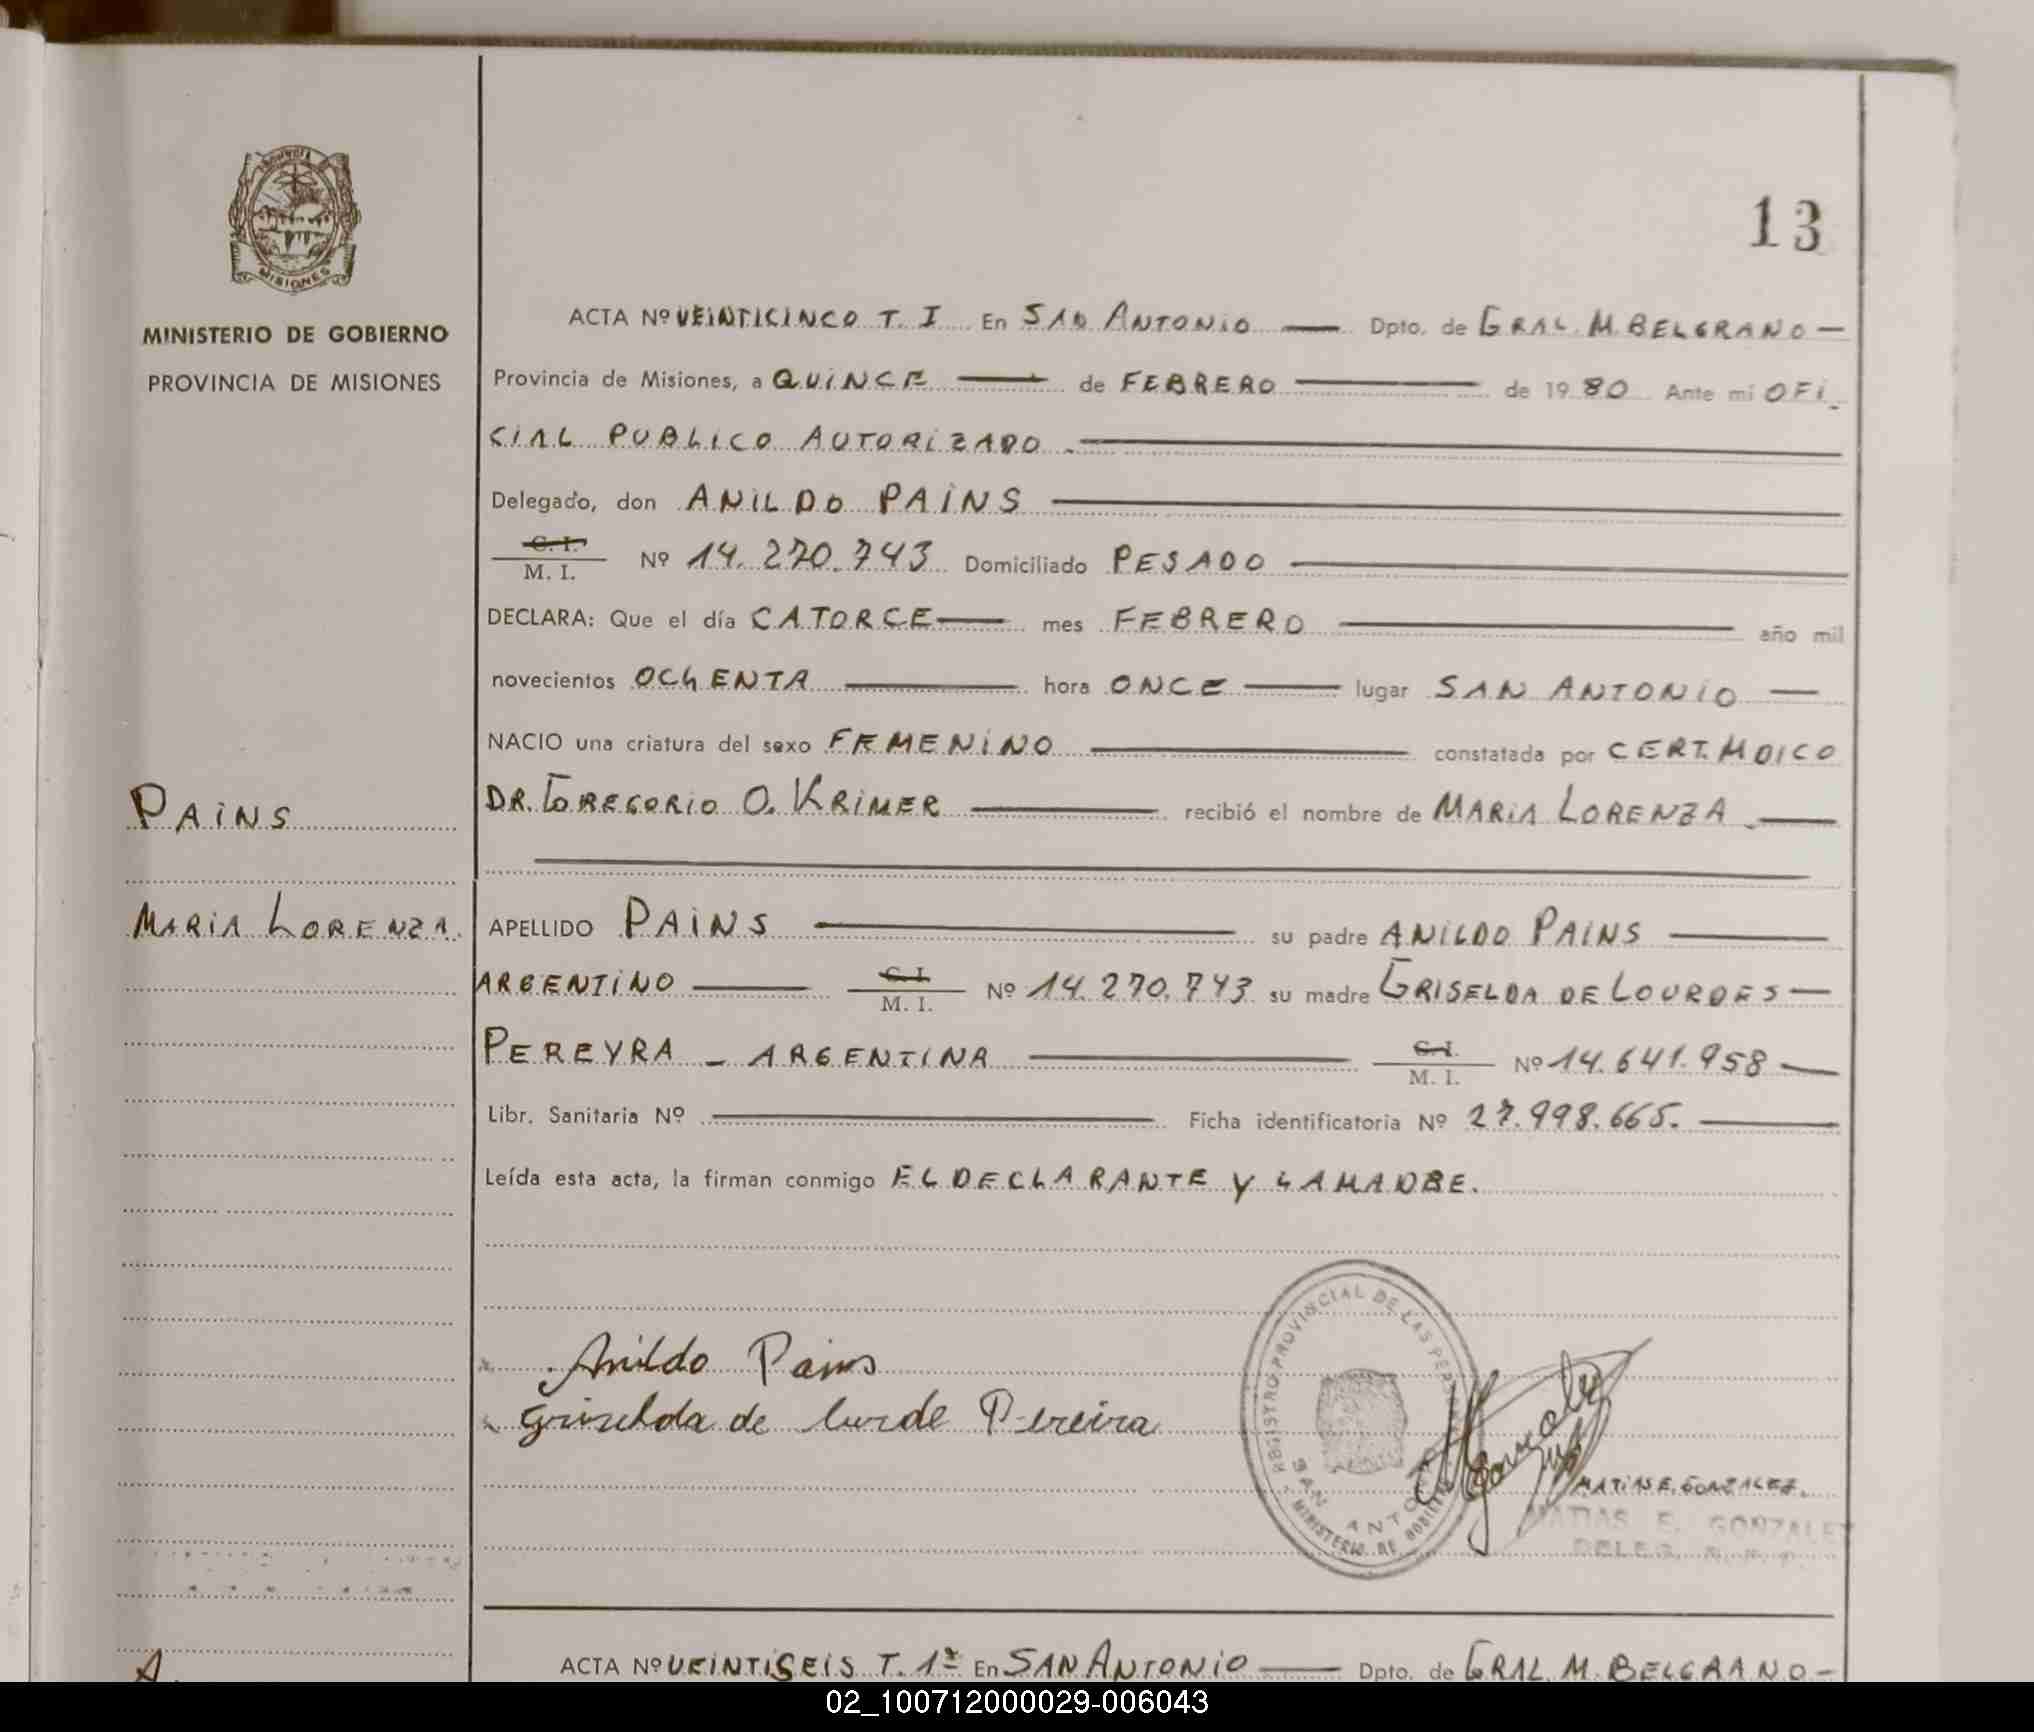 PROVINCIA
MISIONES
MINISTERIO DE GOBIERNO
PROVINCIA DE MISIONES
13
ACTA Nº VEINTICINCO T. I En SAN ANTONIO — Dpto. de GRAL. M. BELGRANO —
Provincia de Misiones, a QUINCE — de FEBRERO — de 1980 Ante mi OFI-
CIAL PUBLICO AUTORIZADO.—
Delegado, don ANILDO PAINS —
C. I.
M. I. Nº 14.270.743 Domiciliado PESADO —
DECLARA: Que el día CATORCE — mes FEBRERO — año mil
novecientos OCHENTA — hora ONCE — lugar SAN ANTONIO —
NACIO una criatura del sexo FEMENINO — constatada por CERT. MDICO
DR. GREGORIO O. KRIMER — recibió el nombre de MARIA LORENZA.—
PAINS
MARIA LORENZA.
APELLIDO PAINS — su padre ANILDO PAINS —
ARGENTINO — C. I.
M. I. Nº 14.270.743 su madre GRISELDA DE LOURDES —
PEREYRA - ARGENTINA — C. I.
M. I. Nº 14.641.958 —
Libr. Sanitaria Nº — Ficha identificatoria Nº 27.998.665. —
Leída esta acta, la firman conmigo EL DECLARANTE Y LA MADRE.
Anildo Pains
Griselda de lurde Pereira
REGISTRO PROVINCIAL DE LAS PERSONAS
SAN ANTONIO
MINISTERIO DE GOBIERNO
Gonzalez
MATIAS E. GONZALEZ.
MATIAS E. GONZALEZ
DELEG. R. P. P.
ACTA Nº VEINTISEIS T. 1º En SAN ANTONIO — Dpto. de GRAL. M. BELGRANO —
02_100712000029-006043